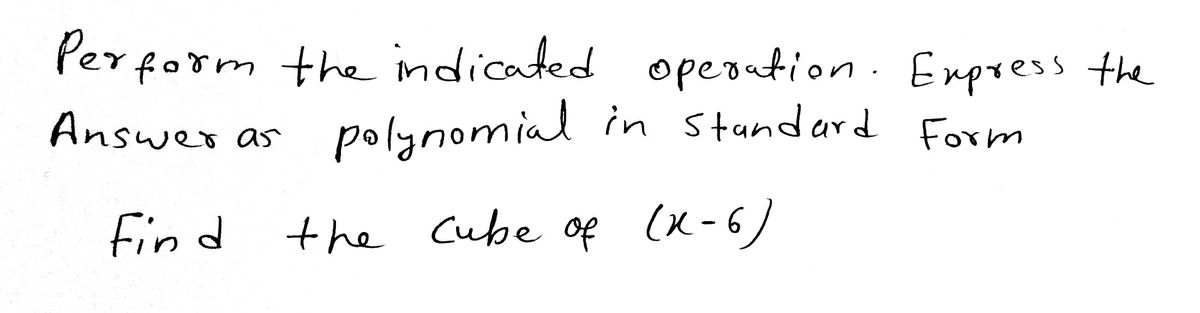 Perform the indicated operation. Express the
Answer as polynomial in standard Form
Find the cube of (x-6)